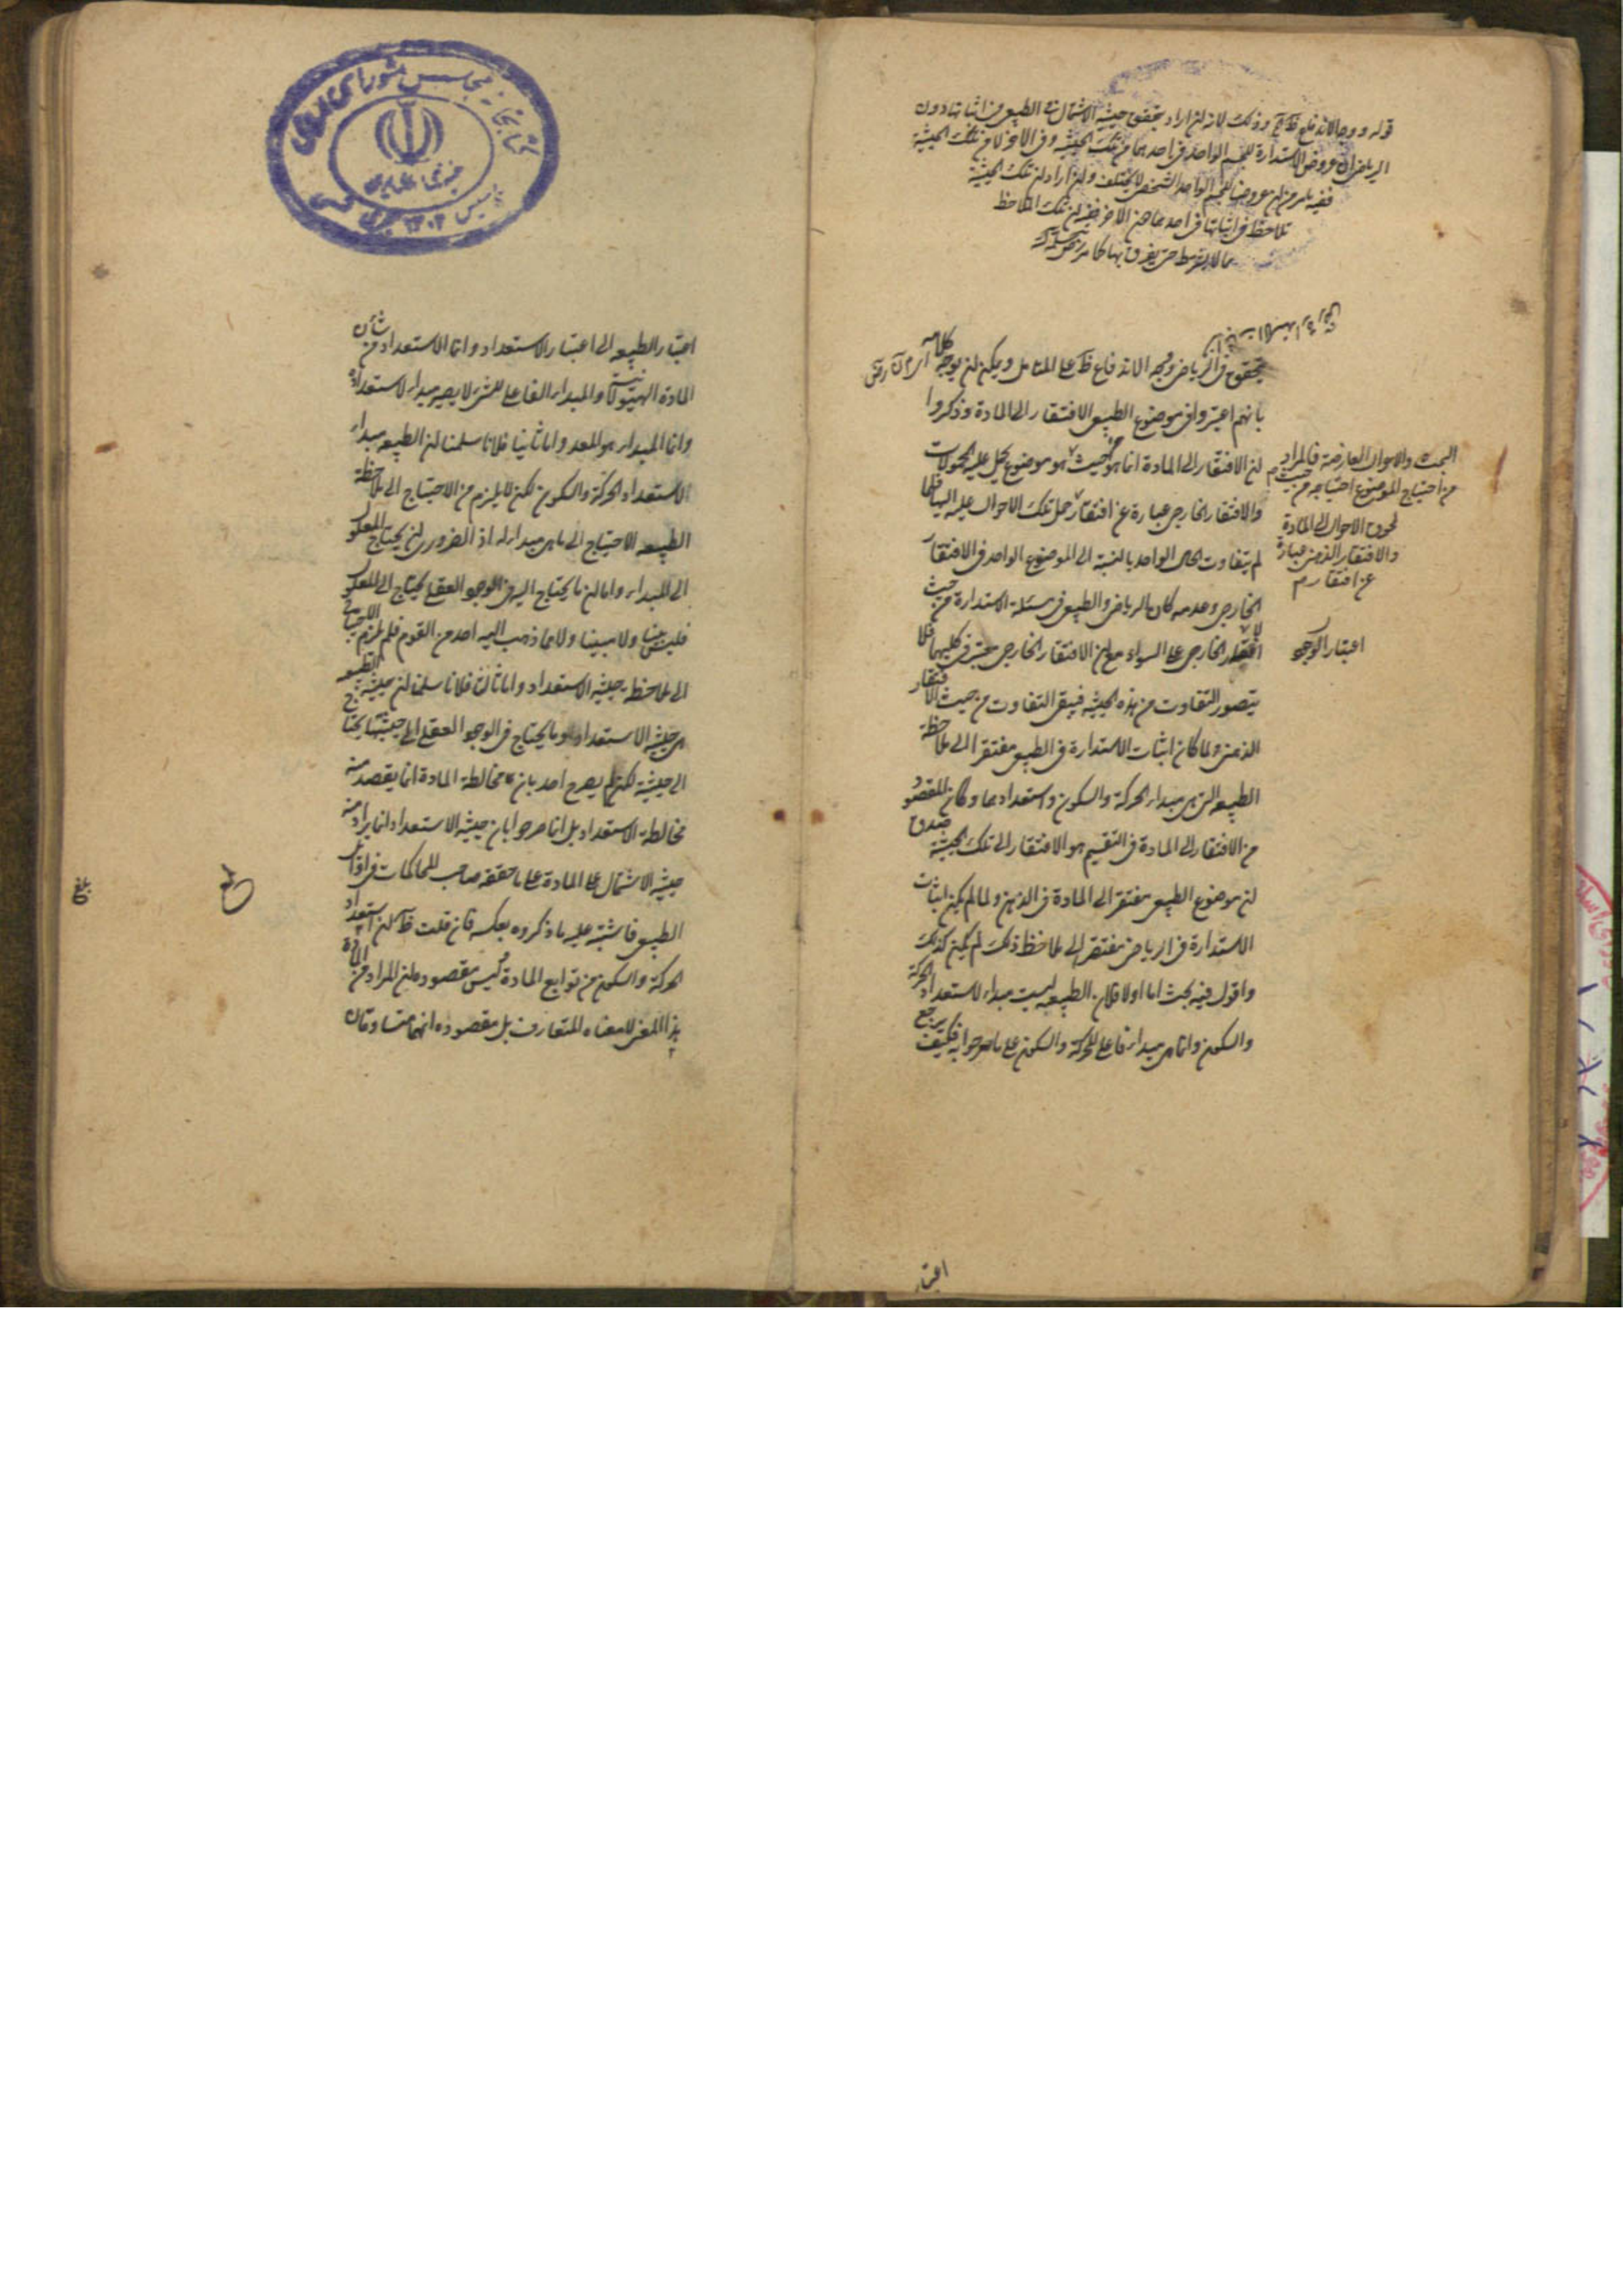 قوله ووجه الاندفاع ظ وذلك لانه لن اراد بتحقق حيثية الاشتمال في الطبيعي في اثباتها دون
الرياضي ان عروض الاستدارة للجسم الواحد في احدهما من تلك الحيثية وفي الاخر لا من تلك الحيثية
ففيه عروضها للجسم الواحد الشخصي لا يختلف ولن اراد لن تلك الحيثية
تلاحظ في اثباتها في احدهما دون الاخر ففيه لن تلك الملاحظة
يتحقق في الرياضي وجه الاندفاع ظ على المتامل ويمكن لن يوجه كلامه
بانهم اعتبروا في موضوع الطبيعي الافتقار الى المادة وذكروا
لن الافتقار الى المادة انما هو من حيث هو موضوع يحمل عليه المحمولات
والافتقار الخارجي عبارة عن افتقار حمل تلك الاحوال عليه اليها فلما
لم يتفاوت الحال الواحد بالنسبة الى الموضوع الواحد في الافتقار
الخارجي وعدمه كان الرياضي والطبيعي في مسئلة الاستدارة من حيث
الافتقار الخارجي على السواء مع لن الافتقار الخارجي معتبر في كليهما فلا
يتصور التفاوت من هذه الحيثية فبقي التفاوت من حيث الافتقار
الذهني ولما كان اثبات الاستدارة في الطبيعي مفتقرا الى ملاحظة
الطبيعة التي هي مبداء الحركة والسكون واستعدادهما وكان المقصود
من الافتقار الى المادة في التقسيم هو الافتقار الى تلك الحيثية صدق
لن موضوع الطبيعي مفتقر الى المادة في الذهن ولما لم يكن اثبات
الاستدارة في الرياضي مفتقرا الى ملاحظة ذلك لم يكن كذلك
واقول فيه بحث اما اولا فلان الطبيعة ليست مبداء لاستعداد الحركة
والسكون وانما هي مبداء فاعلي للحركة والسكون على ما صرحوا به فكيف يرجع
البحث والاحوال العارضة فالمراد
من احتياج الموضوع احتياجه من حيث
لحوق الاحوال الى المادة
والافتقار الذهني عبارة
عن افتقار
اعتبار الوجود
اعتبار
كتابخانه مجلس شورای
اعتبار الطبيعة الى اعتبار الاستعداد وانما الاستعداد من شأن
المادة الهيولانية والمبداء الفاعلي للشئ لا يصير مبداء لاستعداده
وانما المبداء هو المعد واما ثانيا فلانا سلمنا لن الطبيعة مبداء
الاستعداد الحركة والسكون لكن لا يلزم من الاحتياج الى ملاحظة
الطبيعة الاحتياج الى ما هي مبداء له اذ الضروري لن يحتاج المعلول
الى المبداء واما لن ما يحتاج اليه في الوجود العقلي يحتاج الى المعلول
فليس بينا ولا مبينا ولا مما ذهب اليه احد من القوم فلم يلزم الاحتياج
الى ملاحظة حيثية الاستعداد واما ثالثا فلانا سلمنا لن حيثية الطبيعة
هي حيثية الاستعداد وما يحتاج في الوجود العقلي الى حيثيتها يحتاج
الى حيثية لكن لم يصرح احد بان مخالطة المادة انما يقصد منه
مخالطة الاستعداد بل انما صرحوا بان حيثية الاستعداد انما يراد منه
حيثية الاشتمال على المادة على ما حققه صاحب المحاكمات في اوائل
الطبيعي فاشتبه عليه ما ذكروه بعكسه فان قلت ظ لن استعداد
الحركة والسكون من توابع المادة وليس مقصوده لن المراد من المادة
هذا المعنى لا معناه المتعارف بل مقصوده انهما متساوقان
بلغ